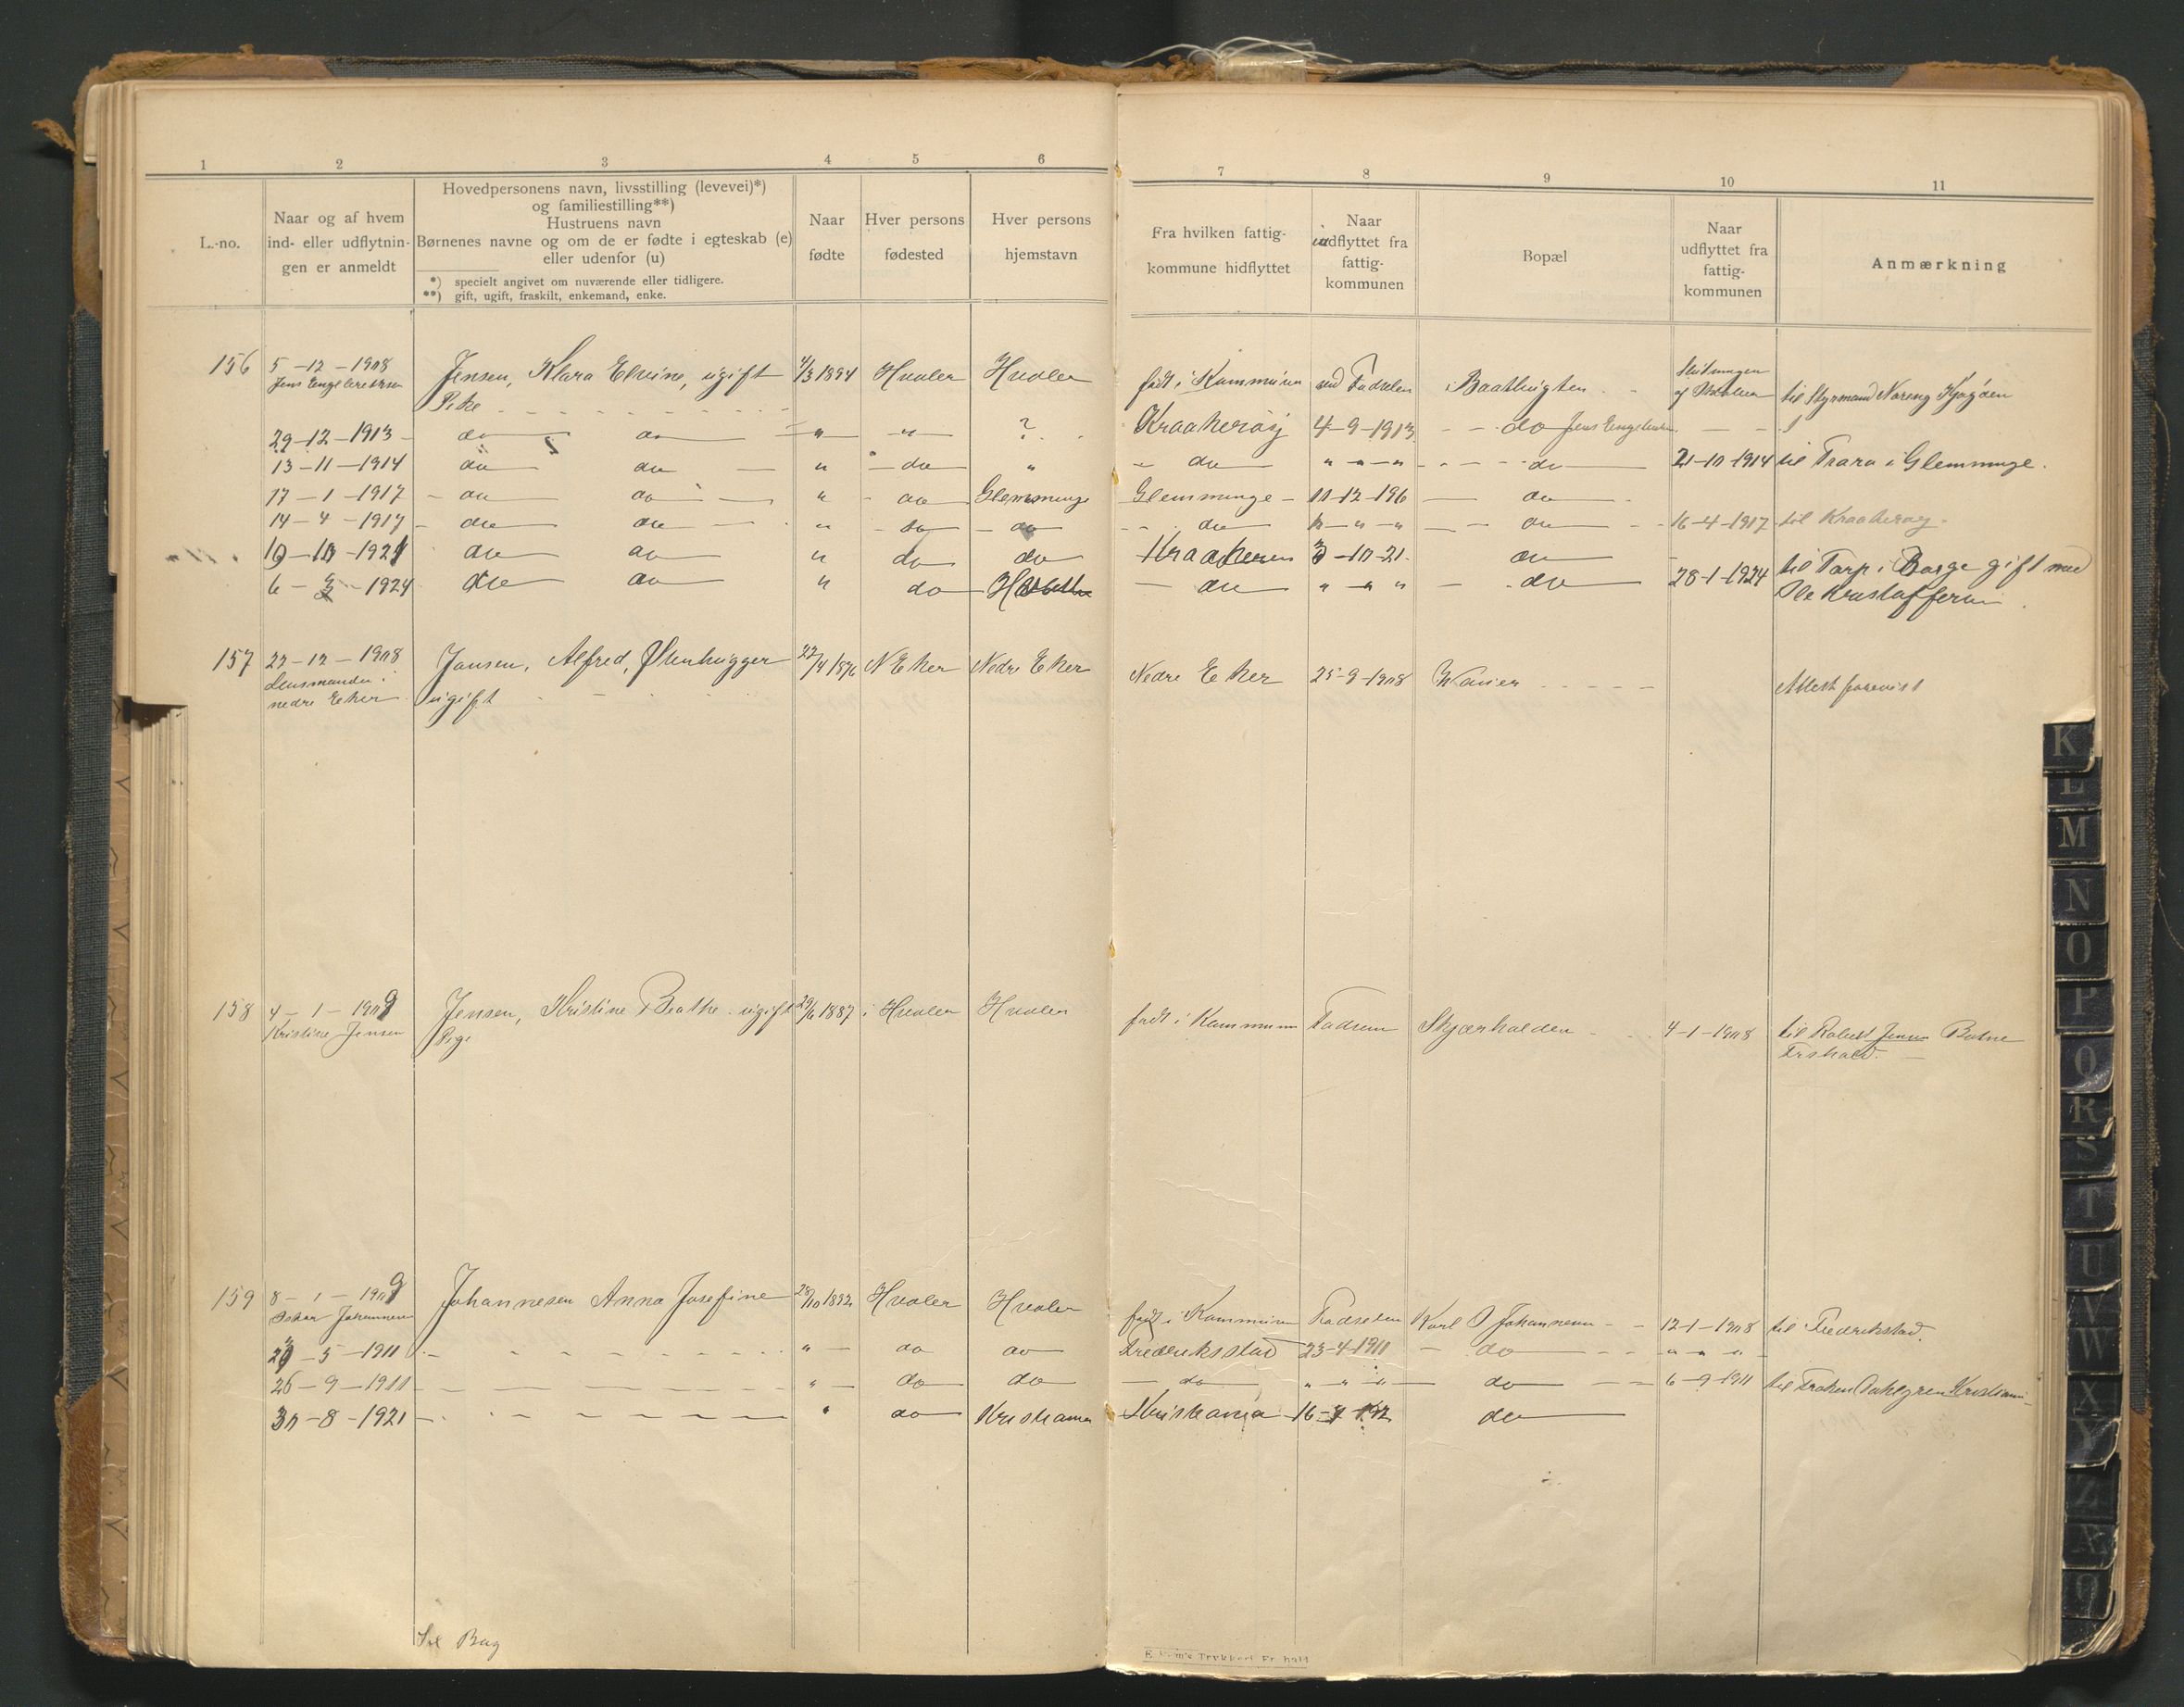 1 2 3 4 5 6 7 8 9 10 11
L.-no.
Naar og af hvem
ind- eller udflytnin-
gen er anmeldt
Hovedpersonens navn, livsstilling (levevei)*)
og familiestilling**)
Hustruens navn
Børnenes navne og om de er fødte i egteskab (e)
eller udenfor (u)
*) specielt angivet om nuværende eller tidligere.
**) gift, ugift, fraskilt, enkemand, enke.
Naar
fødte
Hver persons
fødested
Hver persons
hjemstavn
Fra hvilken fattig-
kommune hidflyttet
Naar
indflyttet fra
fattig-
kommunen
Bopæl
Naar
udflyttet fra
fattig-
kommunen
Anmærkning
156 5-12-1908 Jensen, Klara Elvine, ugift 4/3 1894 Hvaler Hvaler født i Kommunen ved Fødselen Baathugten Slutningen
Jens Engebretsen Pike af Oktober til Styrmand Noreng Kjøgøen
29-12-1913 do do " " ? Kraakerøy 4-9-1913 do Jens Engebretsen
13-11-1914 do do " do " do " " " do 21-10-1914 til Trara i Glemminge.
17-1-1917 do do " do Glemminge Glemminge 11-12-196 do
14-4-1917 do do " do do do " " do 16-4-1917 til Kraakerøy
10-10-1921 do do " do do Kraakerøen 3-10-21 do
6-3-1924 do do " do do " " " do 28-1-1924 til Torp i Borge gift med
Ole Kristoffersen
157 22-12-1908 Jansen, Alfred, Stenhugger 22/4 1876 N Eker Nedre Eker Nedre Eker 25-9-1908 Attest forevist
Lensmanden i
nedre Eker ugift
158 4-1-1909 Jensen, Kristine Beathe ugift 29/6 1887 i Hvaler Hvaler født i Kommunen Skjærhalden 4-1-1908 til Robert Jensen
Kristine Jensen Pige Frshald.
159 8-1-1909 Johannesen Anna Josefine 28/10 1892 Hvaler Hvaler født i Kommunen Fødselen Karl J Johannesen 12-1-1908 til Fredrikstad.
Oskar Johannesen
29-5-1911 " do do Frederiksstad 23-4-1911 do " " "
26-9-1911 " do do do " " " do 6-9-1911 til Frøken Dahlgren Kristiania
30-8-1921 " do Kristiania Kristiania do
Se Bag
E. Trykkeri Fr.hald